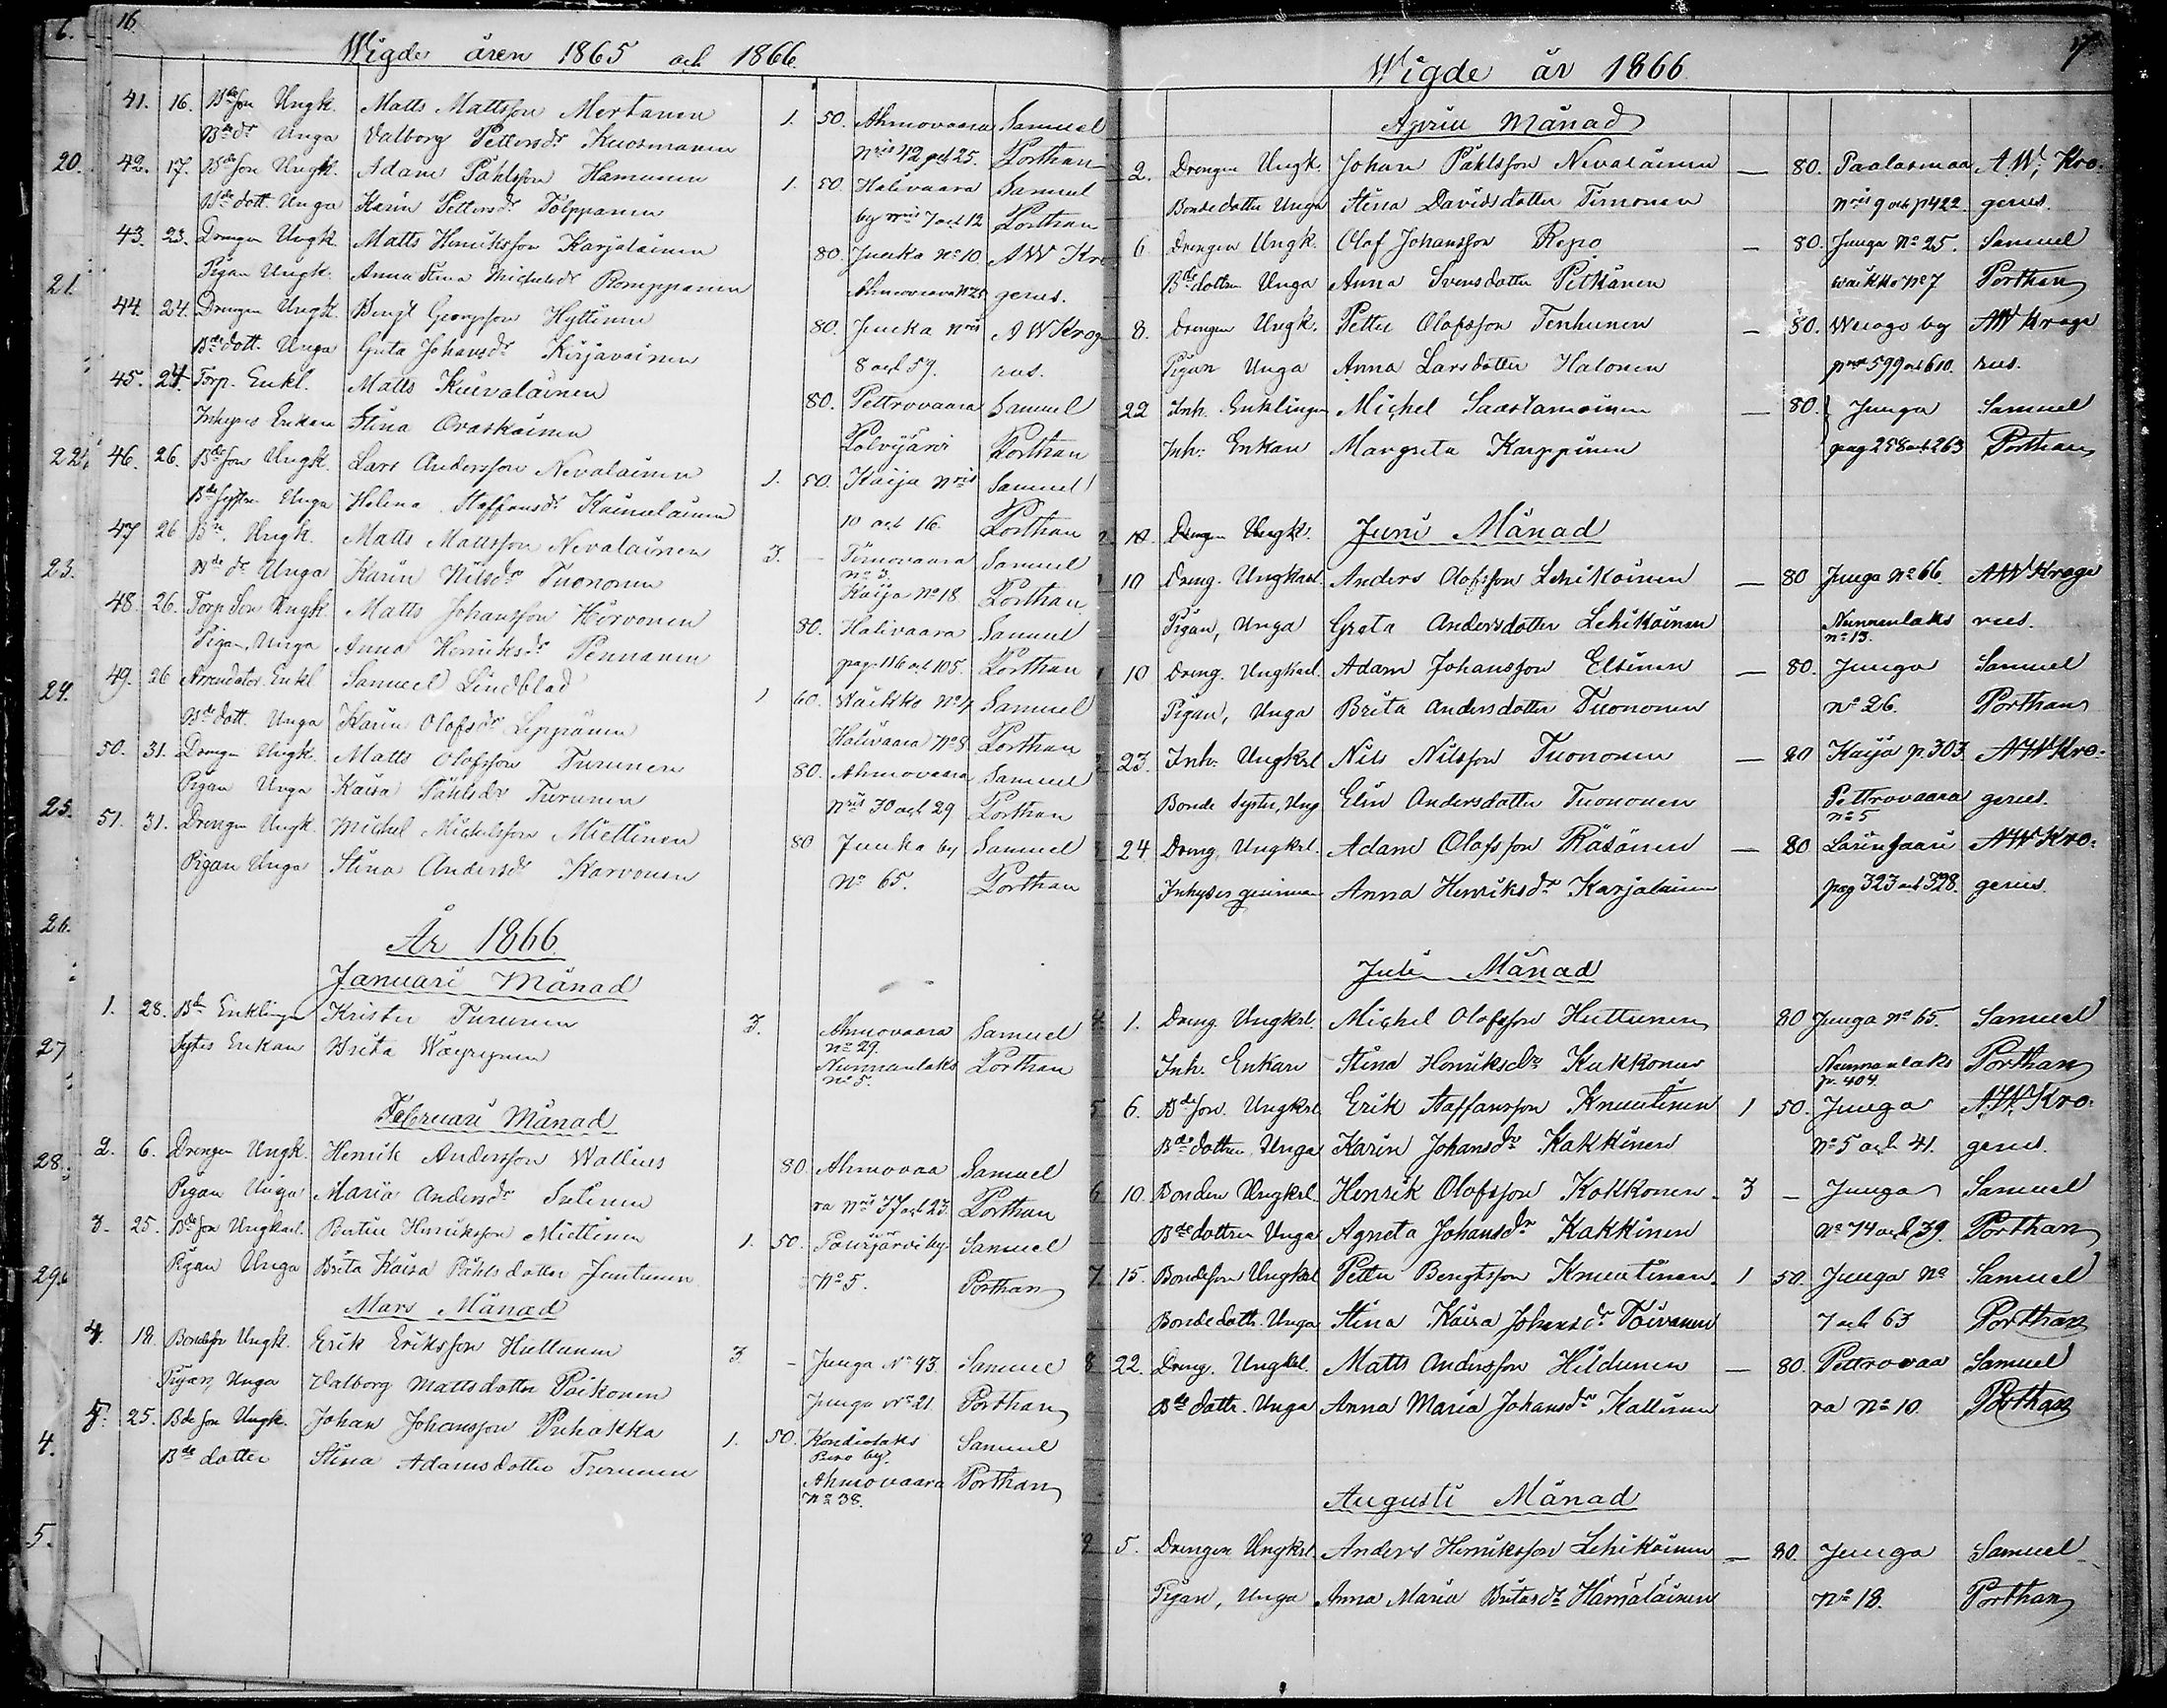 16
Wigde åren 1865 och 1866.
41. 16. Bde son Ungk. Matts Mattsson Mertanen 1. 50. Ahmovaara Samuel
Bde dr Unga Valborg Pettersdr Kuosmanen Nris 42 och 25. Porthan
42. 17. Bde son Ungk. Adam Påhlsson Hämunen 1. 50. Halivaara Samuel
Bde dott. Unga Karin Pettersdr Tolppanen by nris 7 och 12 Porthan
43. 23. Drengen Ungk. Matts Henriksson Karjalainen 80. Juuka No 10 AW Kro
Pigan Ungk. Anna Stina Michelsdr Romppanen Ahmovaara N 25 gerus.
44. 24. Drengen Ungk. Bengt Georgsson Hyttinen 80. Juuka Nris A W Krog
Bde dott. Unga Greta Johansdr Kirjavainen 8 och 57. rus.
45. 24. Torp. Enkl. Matts Kuivalainen 80. Pettrovaara Samuel
Inhyses Enkan Stina Ovaskainen Polvijärvi Porthan
46. 26. Bde son Ungk. Lars Andersson Nevalainen 1. 50. Kaija Nris Samuel
Bde syster Unga Helena Staffansdr Kainulainen 10 och 16. Porthan
47 26 Bn. Ungk. Matts Mattsson Nevalainen 3. - Timovaara Samuel
No 3.
Bde dr Unga Karin Nilsdr Tuononen Kaija No 18 Porthan
48. 26. Torp Son Ungk. Matts Johansson Hirvonen 80. Halivaara Samuel
Pigan, Unga Anna Henriksdr Pennanen pag. 116 och 105. Porthan
49. 26 Arrendator Enkl Samuel Lindblad 1 60. Waikko No 4 Samuel
Bde dott. Unga Karin Olofsdr Leppänen Halivaara No 8 Porthan
50. 31. Drengen Ungk. Matts Olofsson Turunen 80. Ahmovaara Samuel
Pigan Unga Kaisa Påhlsdr Turunen Nris 30 och 29 Porthan
51. 31. Drengen Ungk. Michel Michelsson Miettinen 80 Juuka by Samuel
Pigan Unga Stina Andersdr Karvonen No 65. Porthan
År 1866.
Januari Månad
1. 28. Bde Enklingen Krister Turunen 3. Ahmovaara Samuel
No 29.
Sytes Enkan Brita Wäyrynen Nunnanlaks Porthan
No 5.
Februari Månad
2. 6. Drengen Ungk. Henrik Andersson Wallius 80. Ahmovaa Samuel
Pigan Unga Maria Andersdr ra Nris 37 och 23. Porthan
3. 25. Bde son Ungkarl. Bertil Henriksson Miettinen 1. 50. Paurjärvi by. Samuel
Pigan Unga Brita Kaisa Påhls dotter Juntunen No 5. Porthan
Mars Månad
4. 18. Bondeson Ungk. Erik Eriksson Huttunen 3. - Junga No 43 Samuel
Pigan, Unga Valborg Mattsdotter Poikonen Junga No 21 Porthan
5. 25. Bde son Ungk. Johan Johansson Puhakka 1. 50. Kondiolaks Samuel
Puro by.
Bde dotter Stina Adamsdotter Turunen Ahmovaara Porthan
No 38.
6.
20.
21.
22.
23.
24.
25.
26.
27
28.
29.
4.
5.
17
Wigde år 1866.
April Månad
2. Drengen Ungk. Johan Påhlsson Nevalainen — 80. Paalasmaa A.W. Kro-
Bondedotter Unga Stina Davidsdotter Timonen Nris 9 och p 422. gerus.
6. Drengen Ungk. Olof Johansson Repo — 80. Junga No 25. Samuel
Bde dottren Unga Anna Svensdotter Pitkänen waikko No 7 Porthan
8. Drengen Ungk. Petter Olofsson Tenhunen — 80. Wuogo by AW Kroge
Pigan Unga Anna Larsdotter Halonen 599 och 610. rus.
22 Inh. Enklingen Michel Saastamoinen — 80. Junga Samuel
Inh. Enkan Margreta Karppinen pag 258 och 263 Porthan
10. Drengen Ungk. Juni Månad
10 Dreng. Ungkarl. Anders Olofsson Lehikoinen — 80 Junga No 66. AW Kroge
Pigan, Unga Greta Andersdotter Lehikoinen Nunnanlaks rus.
No 13.
10 Dreng. Ungkarl. Adam Johansson Elsinen — 80. Junga Samuel
Pigan, Unga Brita Andersdotter Tuononen No 26. Porthan
23. Inh. Ungkrl Nils Nilsson Tuononen — 80 Kaija p. 303 AW Kro-
Bonde Syster, Ung Elin Andersdotter Tuononen Pettrovaara gerus.
No 5
24 Dreng. Ungkrl. Adam Olofsson Räsänen — 80 Larinsaari AW Kro-
Inhyses Anna Henriksdr Karjalainen pag 323 och 328. gerus.
Juli Månad
4. 1. Dreng. Ungkrl. Michel Olofsson Huttunen 80 Junga No 65. Samuel
Inh. Enkan Stina Henriksdr Kukkonen Nunnanlaks Porthan
p. 404.
5. 6. Bde son Ungkrl. Erik Staffansson Knuutinen 1 50. Junga A.W. Kro-
Bde dottren Unga Karin Johansdr Kakkinen No 5 och 41. gerus.
6. 10. Bonden Ungkrl. Henrik Olofsson Kokkonen. 3 - Junga Samuel
Bde dottren Unga Agneta Johansdr Kakkinen No 74 och 39. Porthan
7. 15. Bondeson Ungkrl Petter Bengtsson Knuutinen. 1 50. Junga No Samuel
Bondedottr. Unga Stina Kaisa Johansdr Toivanen 7 och 63 Porthan
8 22. Dreng. Ungkrl. Matts Andersson Hildunen — 80. Pettrovaa Samuel
Bde dottr. Unga Anna Maria Johansdr Kallinen ra No 10. Porthan
Augusti Månad
9 5. Drengen Ungkrl. Anders Henriksson Lehikoinen — 80. Junga Samuel
Pigan, Unga Anna Maria Britasdr Hämäläinen No 18. Porthan